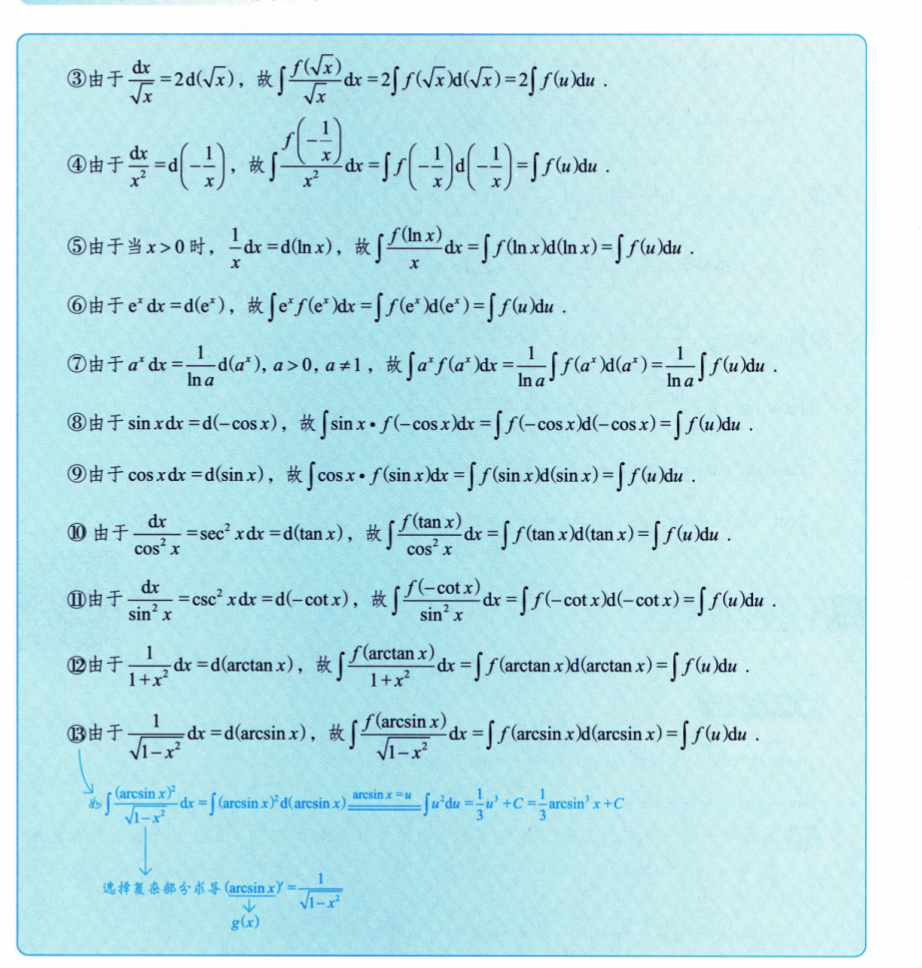 ③由于 $\frac{dx}{\sqrt{x}}=2d(\sqrt{x})$，故 $\int\frac{f(\sqrt{x})}{\sqrt{x}}dx=2\int f(\sqrt{x})d(\sqrt{x})=2\int f(u)du$．
④由于 $\frac{dx}{x^2}=d\left(-\frac{1}{x}\right)$，故 $\int\frac{f\left(-\frac{1}{x}\right)}{x^2}dx=\int f\left(-\frac{1}{x}\right)d\left(-\frac{1}{x}\right)=\int f(u)du$．
⑤由于当 $x>0$ 时，$\frac{1}{x}dx=d(\ln x)$，故 $\int\frac{f(\ln x)}{x}dx=\int f(\ln x)d(\ln x)=\int f(u)du$．
⑥由于 $e^x dx=d(e^x)$，故 $\int e^x f(e^x)dx=\int f(e^x)d(e^x)=\int f(u)du$．
⑦由于 $a^x dx=\frac{1}{\ln a}d(a^x), a>0, a\neq1$，故 $\int a^x f(a^x)dx=\frac{1}{\ln a}\int f(a^x)d(a^x)=\frac{1}{\ln a}\int f(u)du$．
⑧由于 $\sin xdx=d(-\cos x)$，故 $\int\sin x\cdot f(-\cos x)dx=\int f(-\cos x)d(-\cos x)=\int f(u)du$．
⑨由于 $\cos xdx=d(\sin x)$，故 $\int\cos x\cdot f(\sin x)dx=\int f(\sin x)d(\sin x)=\int f(u)du$．
⑩由于 $\frac{dx}{\cos^2 x}=\sec^2 xdx=d(\tan x)$，故 $\int\frac{f(\tan x)}{\cos^2 x}dx=\int f(\tan x)d(\tan x)=\int f(u)du$．
⑪由于 $\frac{dx}{\sin^2 x}=\csc^2 xdx=d(-\cot x)$，故 $\int\frac{f(-\cot x)}{\sin^2 x}dx=\int f(-\cot x)d(-\cot x)=\int f(u)du$．
⑫由于 $\frac{1}{1+x^2}dx=d(\arctan x)$，故 $\int\frac{f(\arctan x)}{1+x^2}dx=\int f(\arctan x)d(\arctan x)=\int f(u)du$．
⑬由于 $\frac{1}{\sqrt{1-x^2}}dx=d(\arcsin x)$，故 $\int\frac{f(\arcsin x)}{\sqrt{1-x^2}}dx=\int f(\arcsin x)d(\arcsin x)=\int f(u)du$．
如 $\int\frac{(\arcsin x)^2}{\sqrt{1-x^2}}dx=\int(\arcsin x)^2d(\arcsin x)\overset{\arcsin x=u}{=}\int u^2du=\frac{1}{3}u^3+C=\frac{1}{3}\arcsin^3 x+C$
选择复杂部分求导 $(\arcsin x)'=\frac{1}{\sqrt{1-x^2}}$
$g(x)$